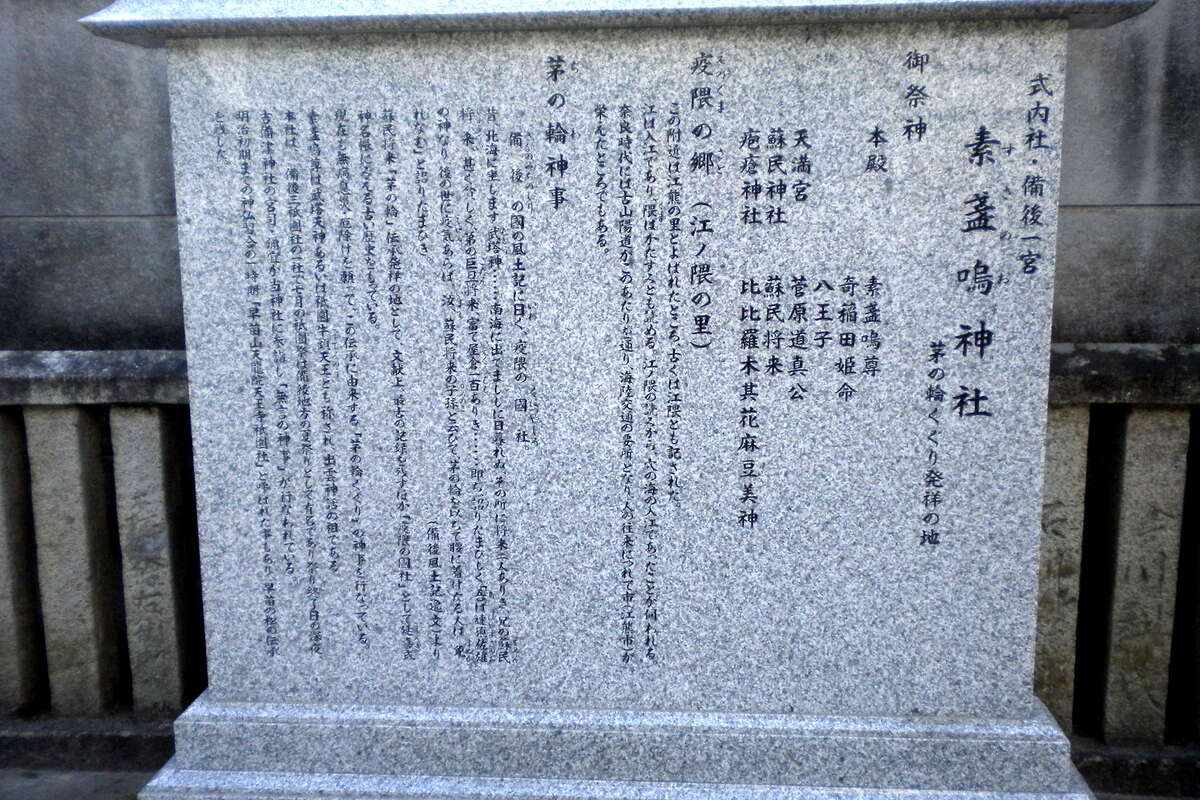 式内社・備後一宮
素盞嗚神社
すさのお
茅の輪くぐり発祥の地
御祭神
本殿 素盞嗚尊
奇稲田姫命
八王子
天満宮 菅原道真公
蘇民神社 蘇民将来
疱瘡神社 比比羅木其花麻豆美神
疫隈の郷（江ノ隈の里）
この附近は江熊の里とよばれたところ、古くは江隈とも記された。
江は入江であり、隈はかたすみとも読める。江ノ隈の読みから、穴の海の入江であったことが伺われる。
奈良時代には古山陽道が、このあたりを通り、海陸交通の要所となり、人の往来につれて市（江熊市）が
栄えたところでもある。
茅の輪神事
備後の國の風土記に曰く、疫隈の國社。
昔、北海に坐します武塔神……南海に出でまししに日暮れぬ。その所に将来二人ありき。兄の蘇民
将来、甚く貧しく、弟の巨旦将来、富て屋倉一百ありき……即ち詔りたまひしく「吾は速須佐雄
の神なり。後の世に疫気あらば、汝、蘇民将来の子孫と云ひて、茅の輪を以ちて腰に着けたる人は、免
れなむ」と詔りたまひき。
（備後風土記逸文）より
蘇民将来「茅の輪」伝承発祥の地として、文献上、最古の記録を残すほか「疫隈の國社」として延喜式
神名帳にみえる古い歴史をもっている。
現在も無病息災、厄除けを願って、この伝承に由来する「茅の輪くぐり」の神事を行なっている。
素盞嗚尊は武塔天神あるいは祇園牛頭天王とも称され、出雲神話の祖である。
本社は、備後三祇園社の一社で七月の祇園祭は備後地方の夏祭りとして有名であり、祭り終了日の深夜
吉備津神社の宮司、禰宜が当神社に参詣し「無言の神事」が行なわれている。
明治初期までの神仏習合の一時期「早苗山天龍院天王寺祇園社」と呼ばれた事もあり、早苗の松の伝承
を残した。